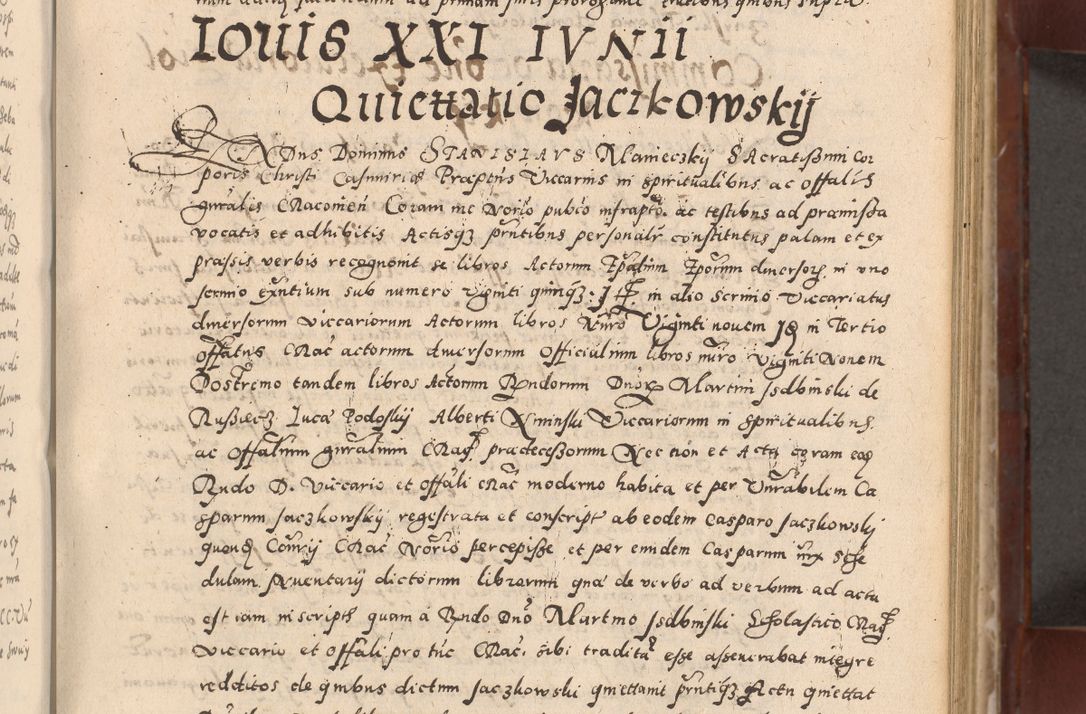 IOUIS XXI IVNII
Quiettatio Jaczkowskij
Dnus Dominus STANISLAUS Manieczkij SAcratißimi Cor
poris Christi Casimiriæ Præptus Viccarius in spiritualibus ac offalis
gnralis CRacovien Coram me Norio pubco infrapto ac testibus ad præmißa
vocatis et adhibitis Actisq prntibus personalr constitutus palam et ex
præssis verbis recognovit se libros Actorum diversorz in vno
scrinio exntium sub numero viginti quinqz in alio Scrinio Viccariatus
diversorum viccariorum Actorum libros Nuro Viginti novem in Tertio
offatus CRac actorum diversorum officialium libros nuro viginti Novem
Postremo tandem libros Actorum Rndorum Dnorz Martini Isdbinski de
Rußiecz Luca Podoskij Alberti Viccariorum in spiritualibus
ac offalium gnralium CRac prædeceßorum Nec non et Acta coram eoq
Rndo D. Viccario et offali CRac moderno habita et per Vnrabilem Ca
sparum Jaczkowskij regestrata et conscript ab eodem Casparo Jaczkowskij
CRac Norio percepiße et per eundem Casparum iux Sche
dulam Inventarij dictorum librarum qua de verbo ad verbum ad actu
est iam inscripth quam a Rndo Dno Martino Isdbinski Scholastico CRac
viccario et offali pro tuc CRac. sibi tradita esse asseverabat integre
redditos de quibus dictum Jaczkowski quiettavit prntiqz Actu quiettat